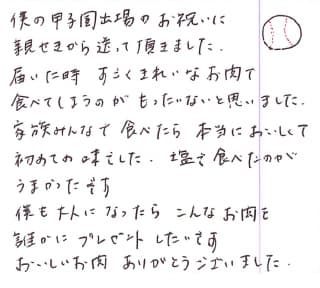 僕の甲子園出場のお祝いに
親せきから送って頂きました.
届いた時 すごくきれいなお肉で
食べてしまうのが もったいないと思いました.
家族みんなで 食べたら 本当においしくて
初めての味でした. 塩で食べたのが
うまかったです
僕も大人になったら こんなお肉を
誰かに プレゼントしたいです
おいしいお肉 ありがとうございました.